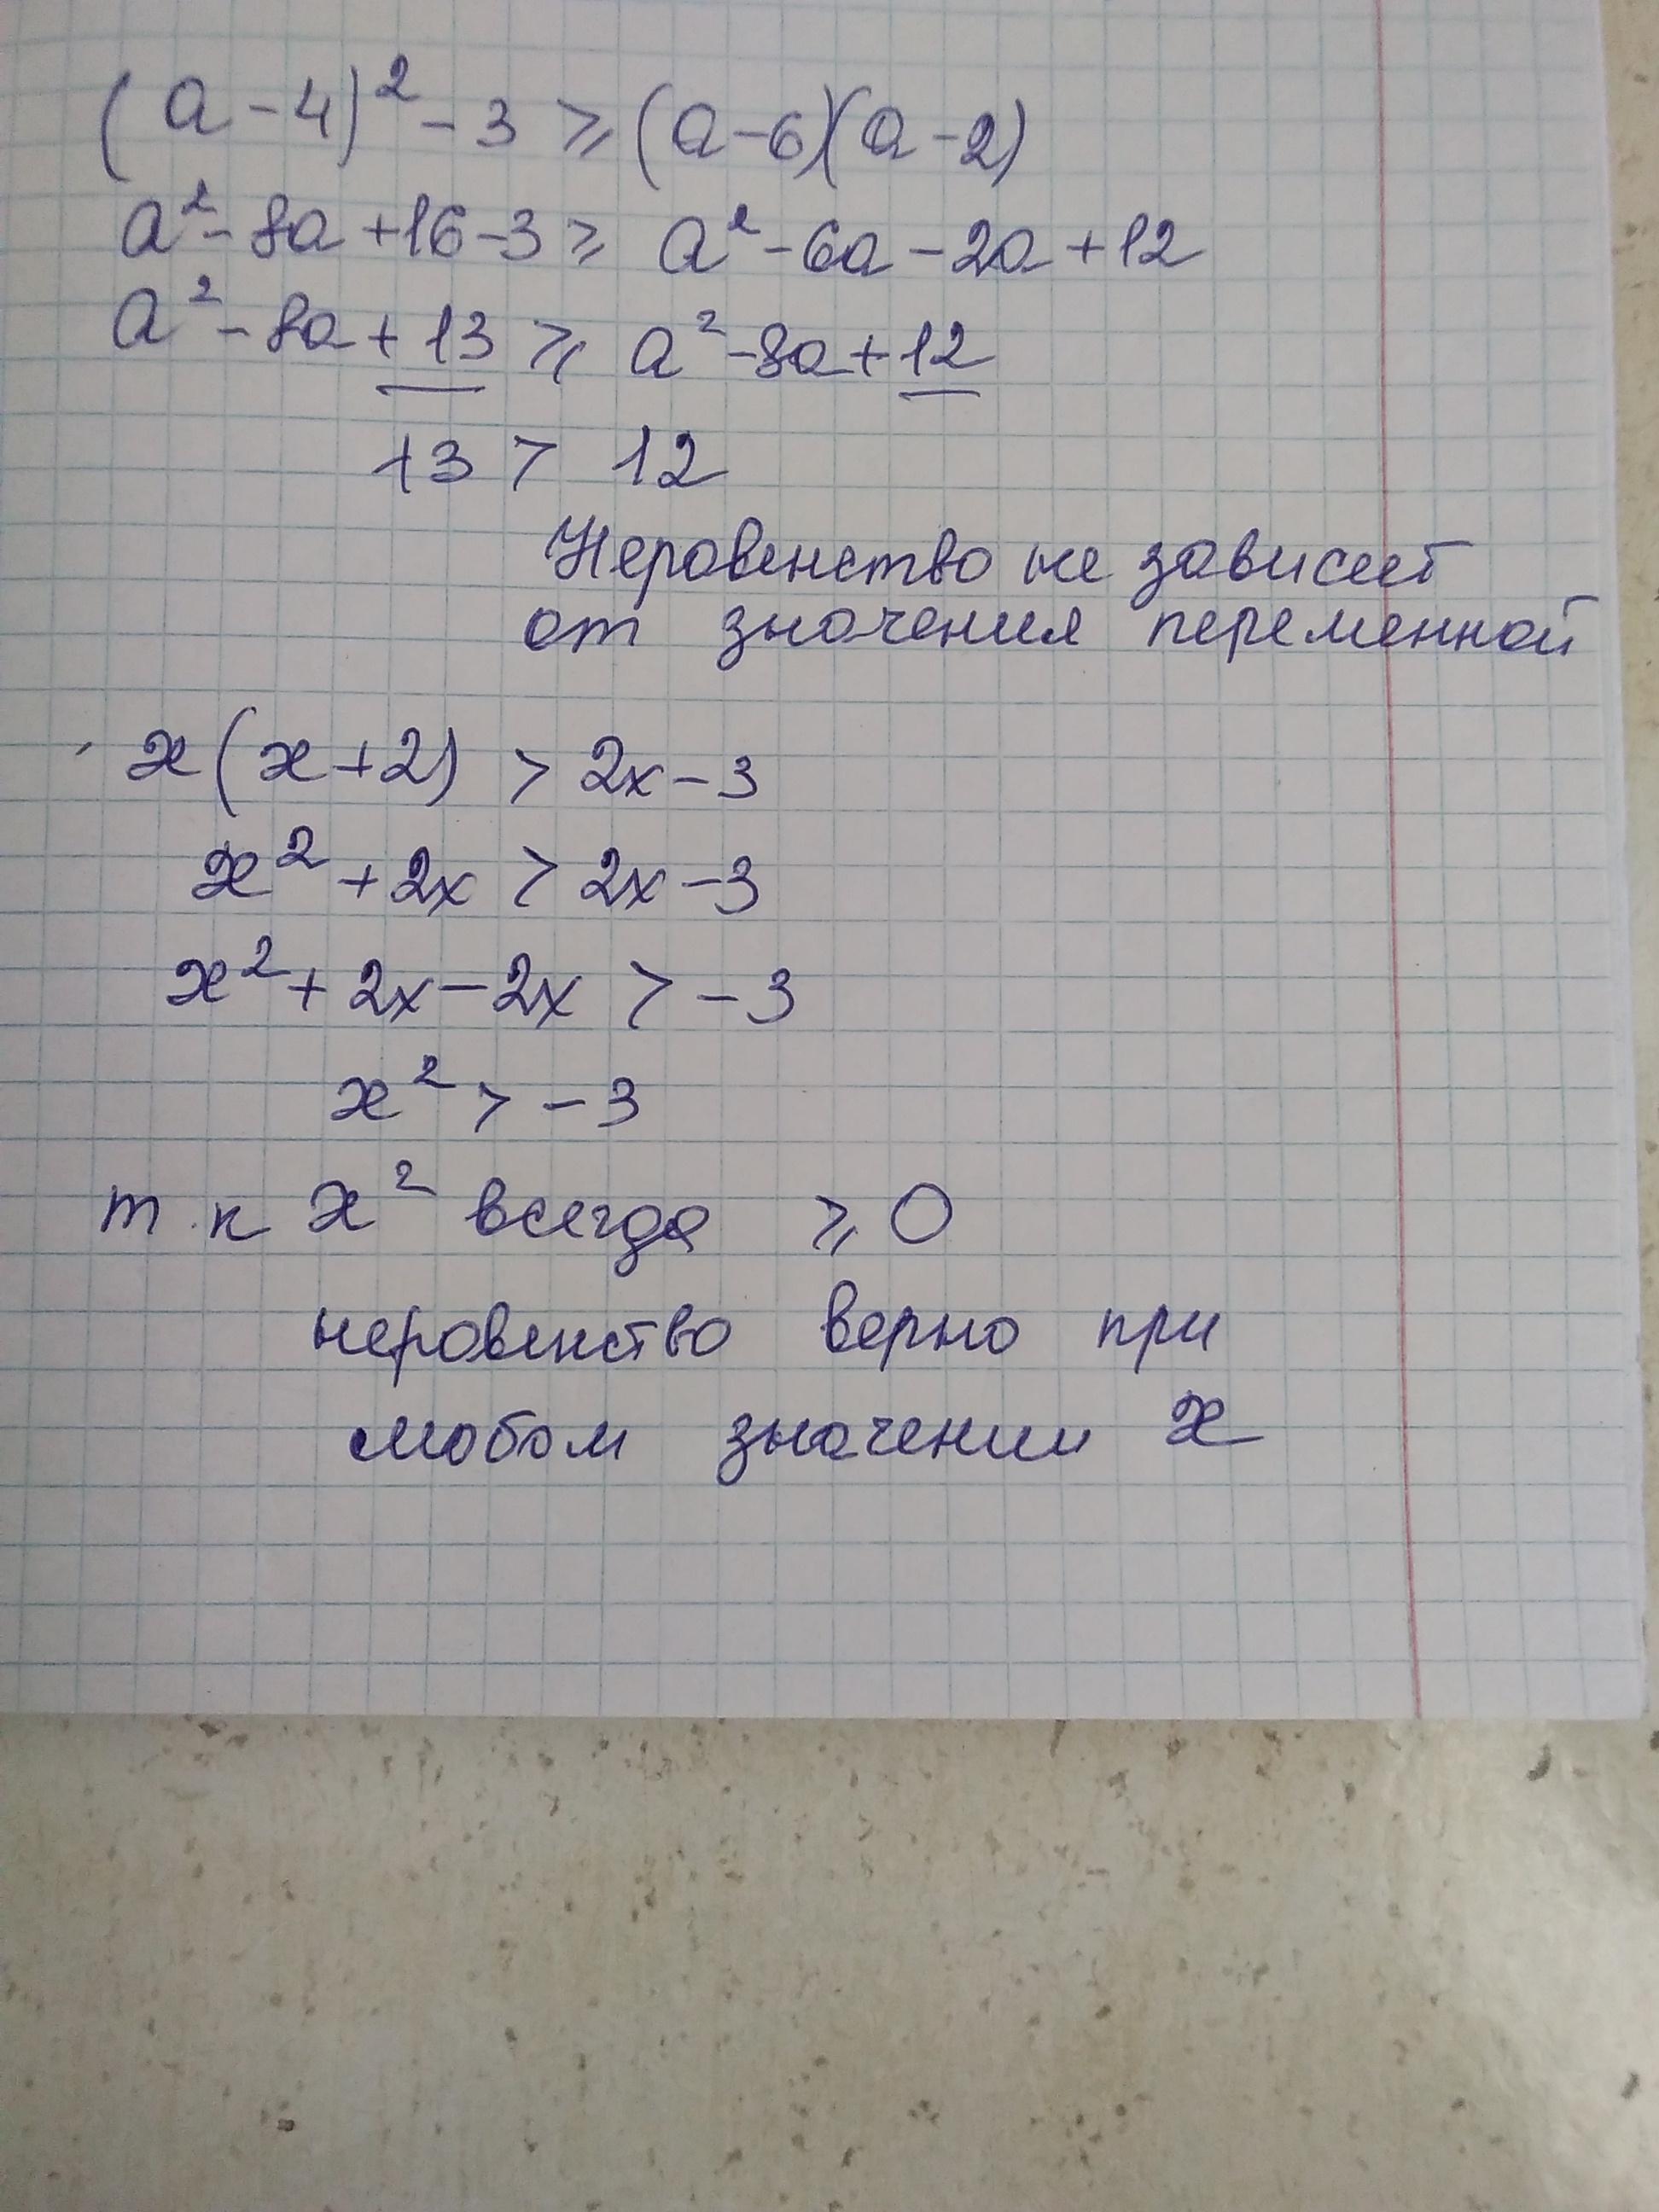 (a-4)² - 3 ⩾ (a-6)(a-2)
a² - 8a + 16 - 3 ⩾ a² - 6a - 2a + 12
a² - 8a + 13 ⩾ a² - 8a + 12
13 > 12
Неровенство не зависет
от значения переменной
x(x+2) > 2x - 3
x² + 2x > 2x - 3
x² + 2x - 2x > -3
x² > -3
т.к x² всегда ⩾ 0
неровенство верно при
любом значении x